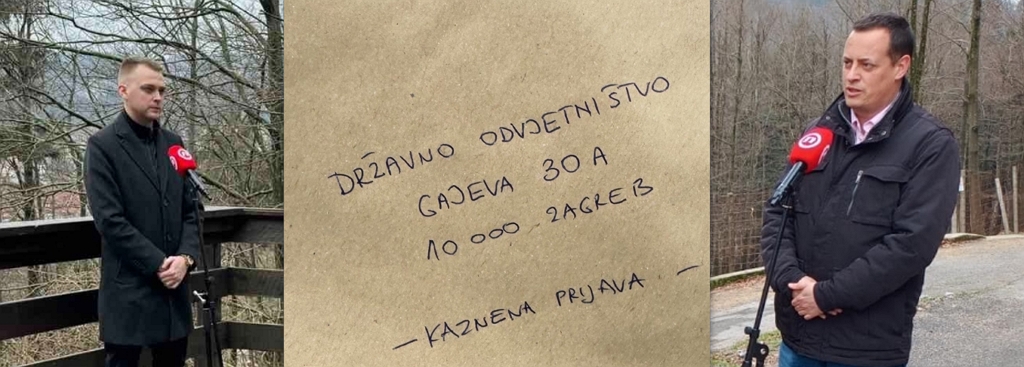 DRŽAVNO ODVJETNIŠTVO
GAJEVA 30 A
10 000 ZAGREB
- KAZNENA PRIJAVA -